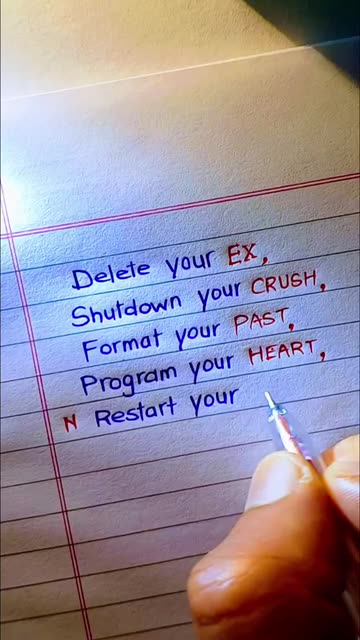 Delete your EX,
Shutdown your CRUSH,
Format your PAST,
Program your HEART,
N Restart your